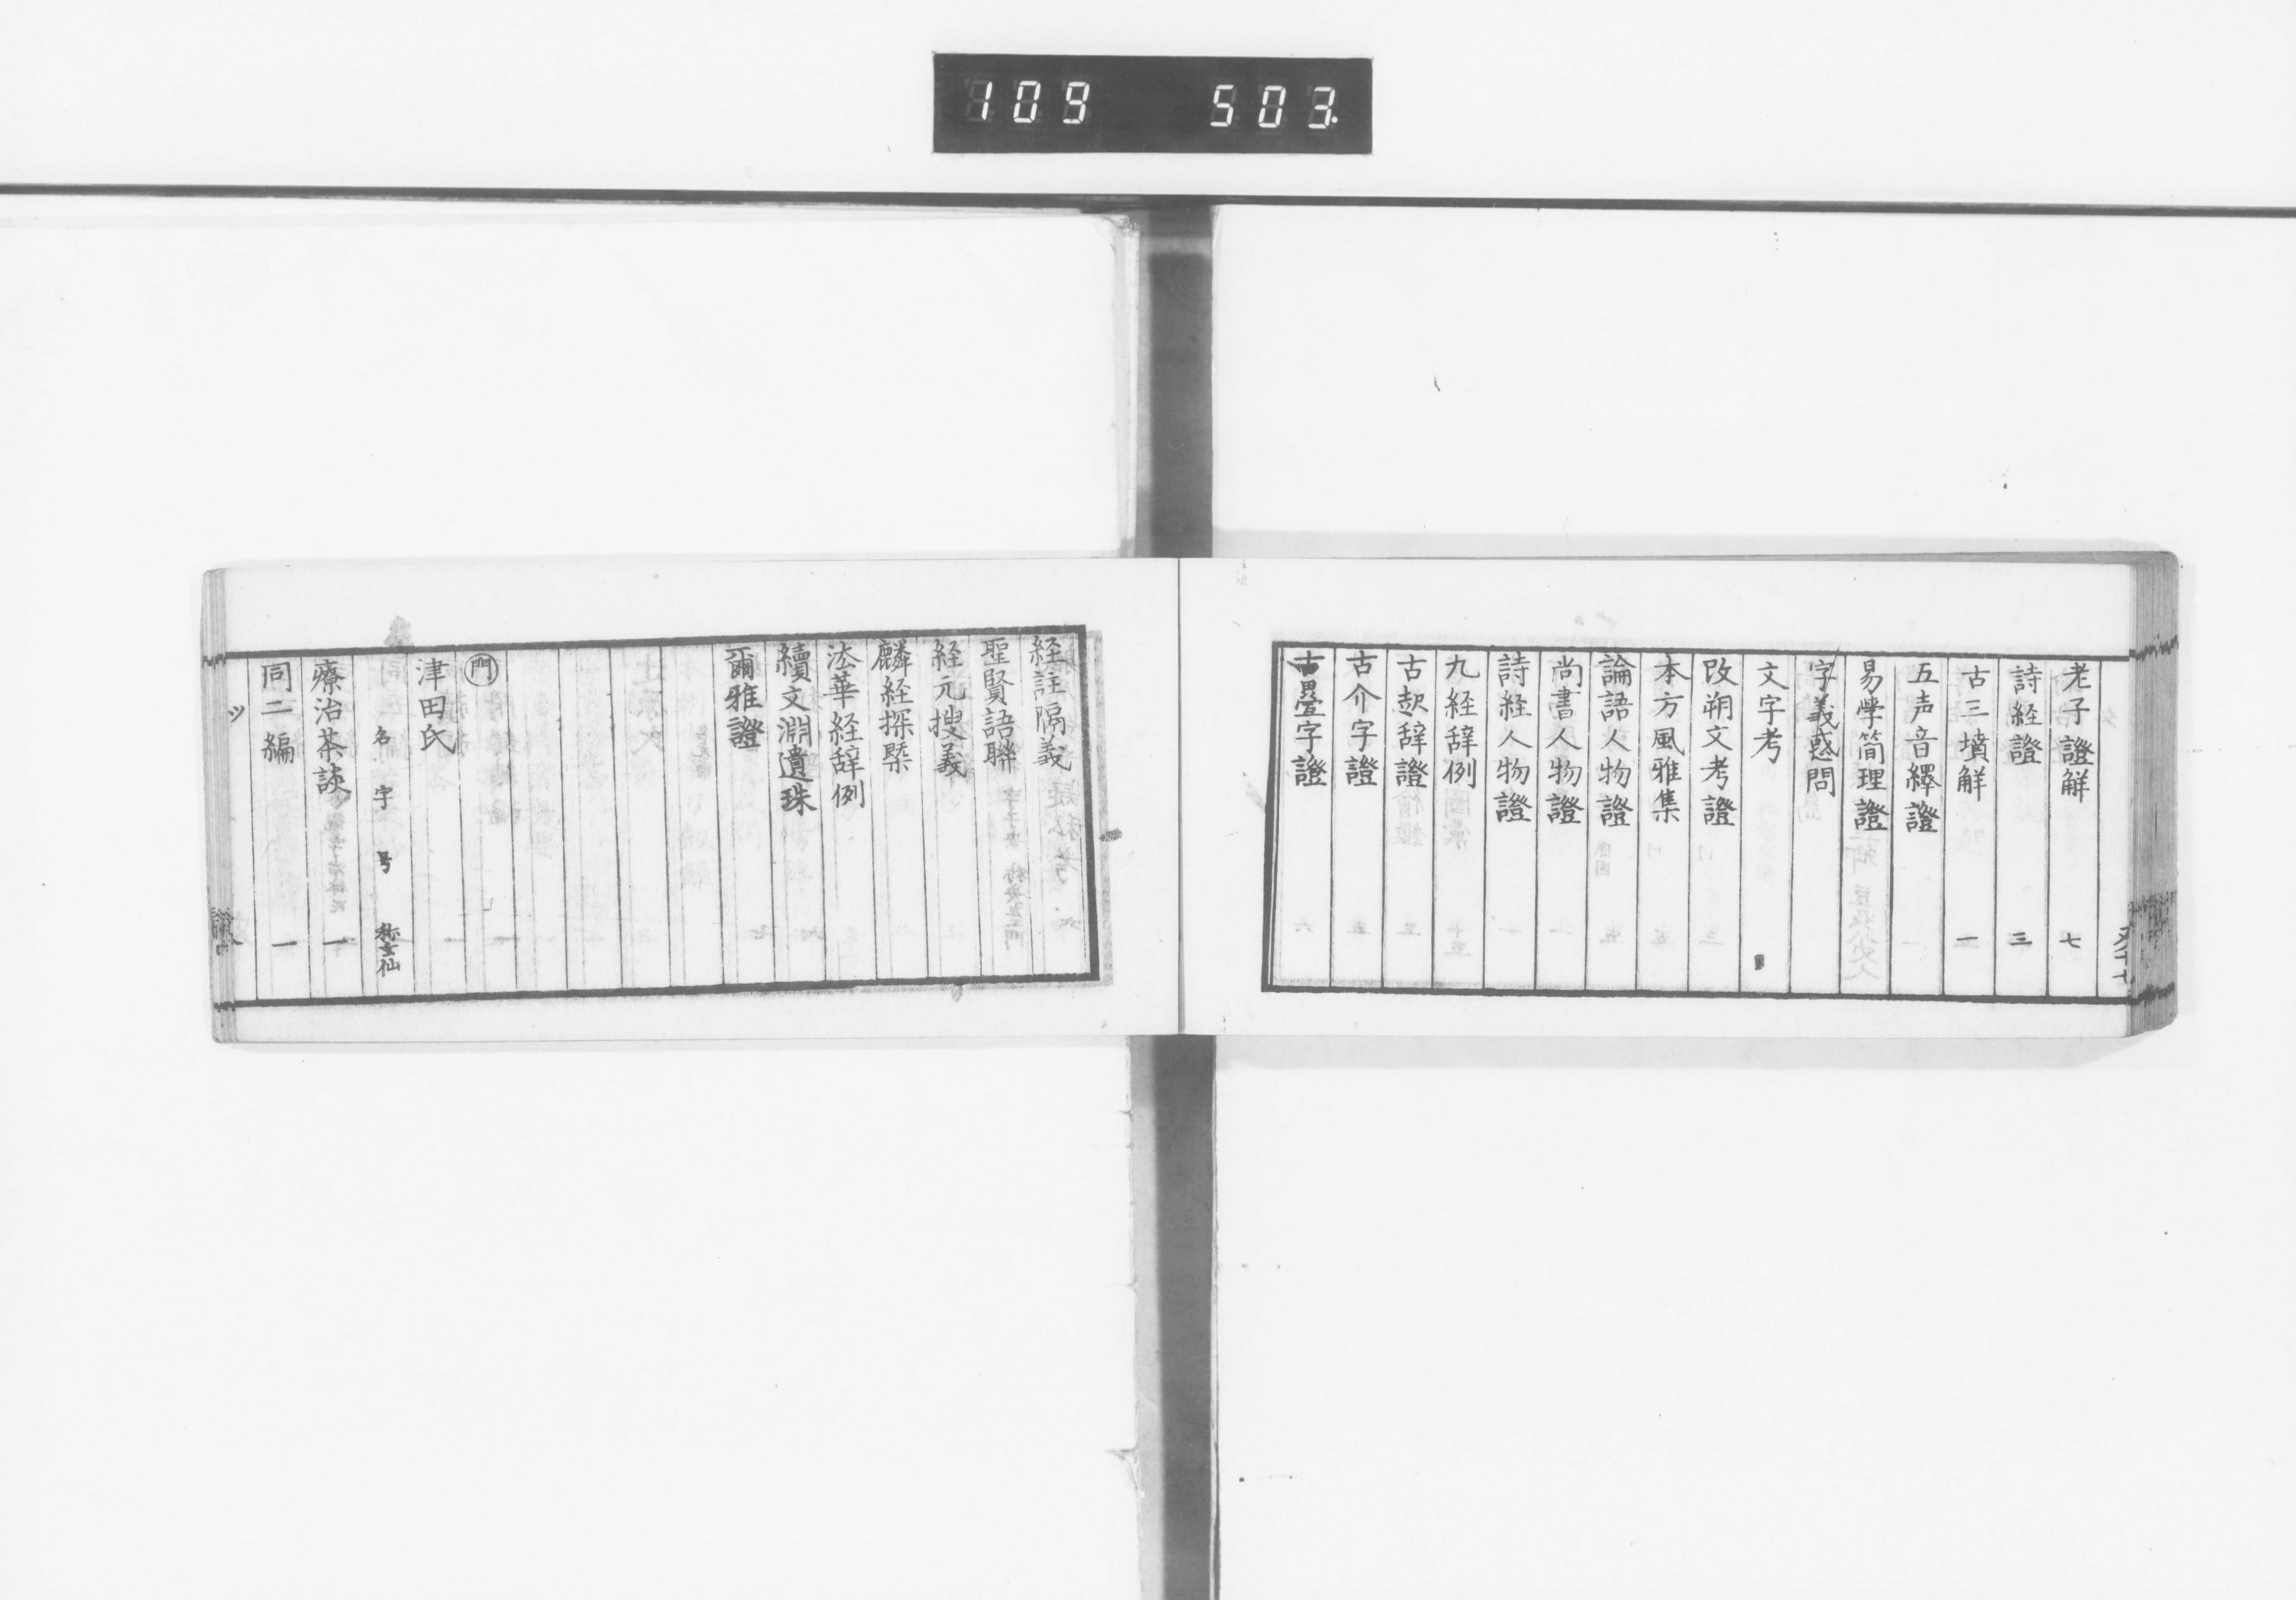 109 503.
老子證解 七
詩経證 三
古三墳解 一
五声音繹證
易学簡理證
字義惑問
文字考
改朔文考證
本方風雅集
論語人物證
尚書人物證
詩経人物證
九経辞例
古欵辞證
古介字證
古畳字證
経註隔義
聖賢語聯
経元搜義
麟経探槩
法華経辞例
續文淵遺珠
爾雅證
門
津田氏
名 字 号 称玄仙
療治茶談 一
同二編 一
ツ